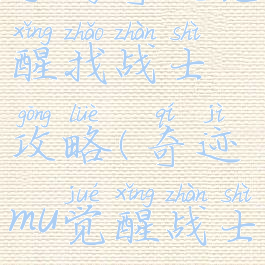 xǐng zhǎo zhàn shì
醒找战士
gōng lüè qí jì
攻略(奇迹
jué xǐng zhàn shì
mu觉醒战士